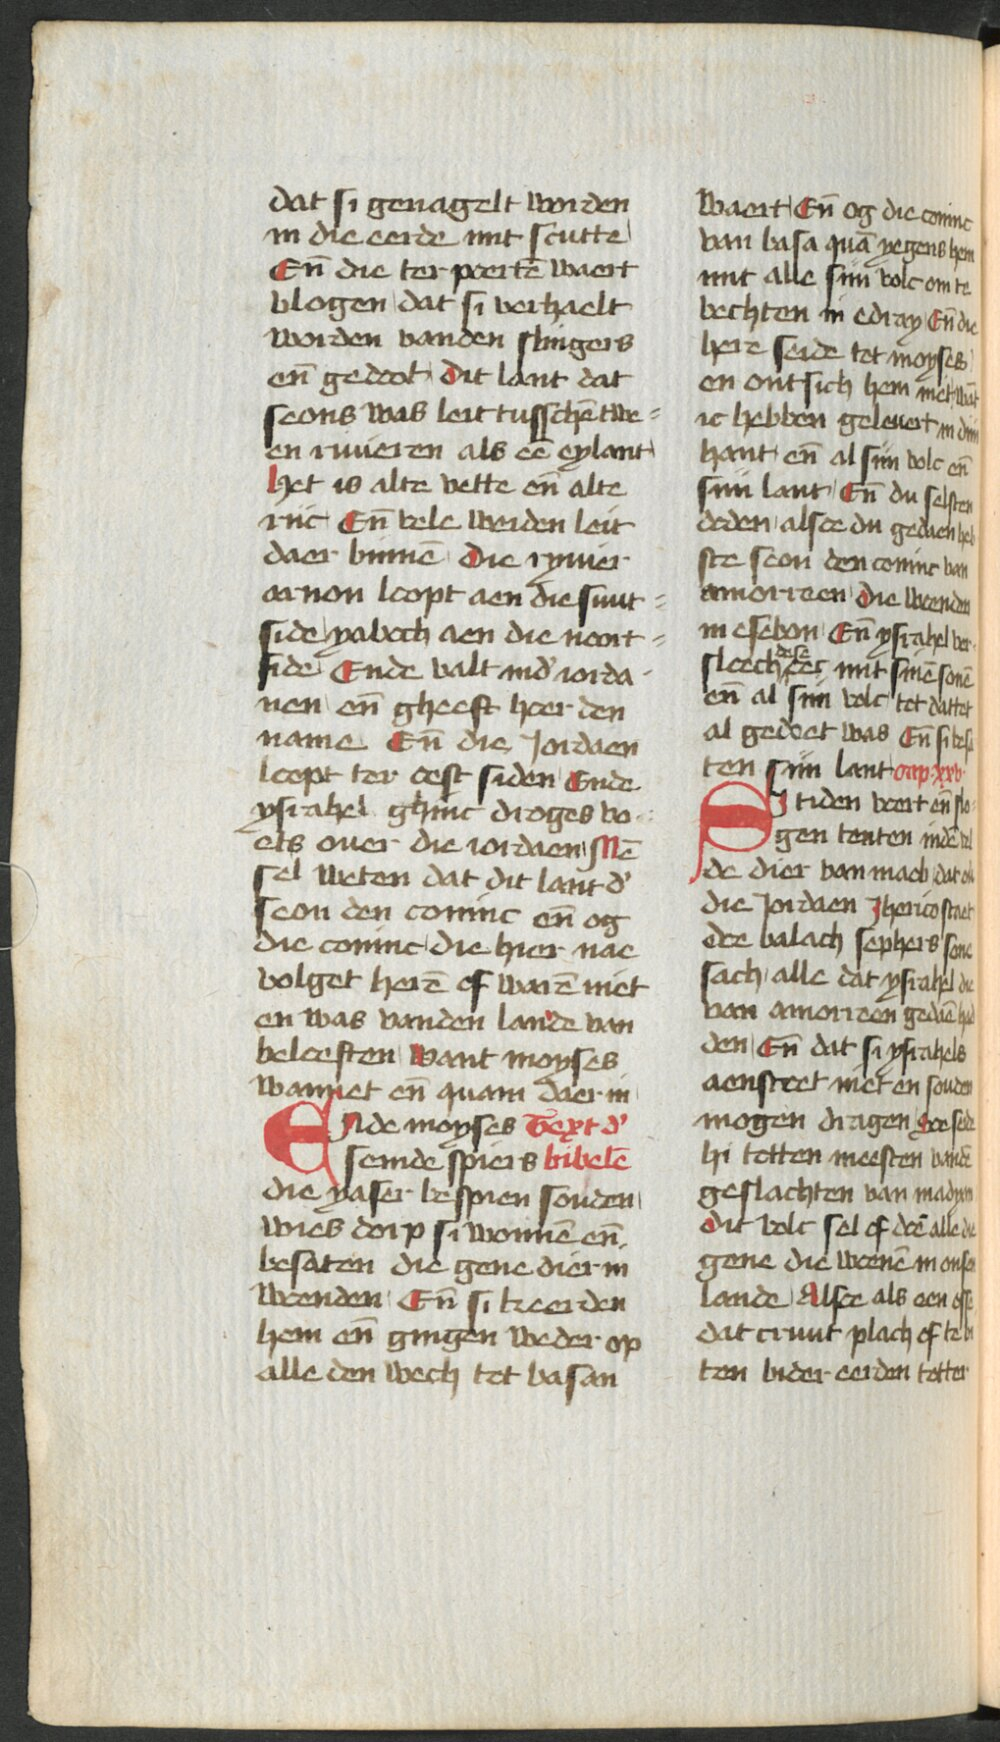 dat si genagelt worden
in die eerde mit scutte
En̄ die ter poertē waert
vlogen dat si verhaelt
worden vanden slingers
en̄ gedoot Dit lant dat
seons was leit tusschē twe=
en rivieren als eē eylant
Het is alte vette en̄ alte
riic En̄ vele weiden leit
daer binnē Die ryvier
arnon loopt aen die suut=
side yaboch aen die noort=
side Ende valt indʼ iorda-
nen en̄ gheeft hoer den
name En̄ die Jordaen
loopt ter oest siden Ende
ysrahel ghinc droges vo-
ets over die iordaen Mē
sel weten dat dit lant dʼ
seon den coninc en̄ og
die coninc die hier nae
volget herē of warē niet
en was vanden lande van
beloeften Want moyses
wannet en̄ quam daer in
Ende moyses Text dʼ
seinde spiers bibelē
die yaser bespien souden
wies dorp si wonnē en̄
besaten die gene dier in
woenden En̄ si keerden
hem en̄ gingen weder op
alle den wech tot basan
waert En̄ og die coninc
van basa quā yegens hem
mit alle siin volc om te
vechten in edray En̄ die
here seide tot moyses
en ontsich hem niet wāt
ic hebben gelevert in diin
hant en̄ al siin volc en̄
siin lant En̄ du selsten
doden alsoe du gedaen heb
ste seon den coninc van
amorreen Die woenden
in esebon En̄ ysrahel ver-
sloech dese mit sinē sonē
en̄ al siin volc tot dattet
al gedoet was En̄ si besa
ten siin lant cap. xxv.
Si tiden voert en̄ slo-
gen tenten indē vel
de dier van moab dat
die Jordaen Jherico staet
doe balach sephers sone
sach alle dat ysrahel die
van amorreen gedaē had
den En̄ dat si ysrahels
aenstoet niet en souden
mogen dragen Doe seide
hi totten meesten vandē
geslachten van madyan
Dit volc sel of doē alle die
gene die woenē in onsen
lande Alsoe als een osse
dat cruut plach of te bi
ten bider eerden totter